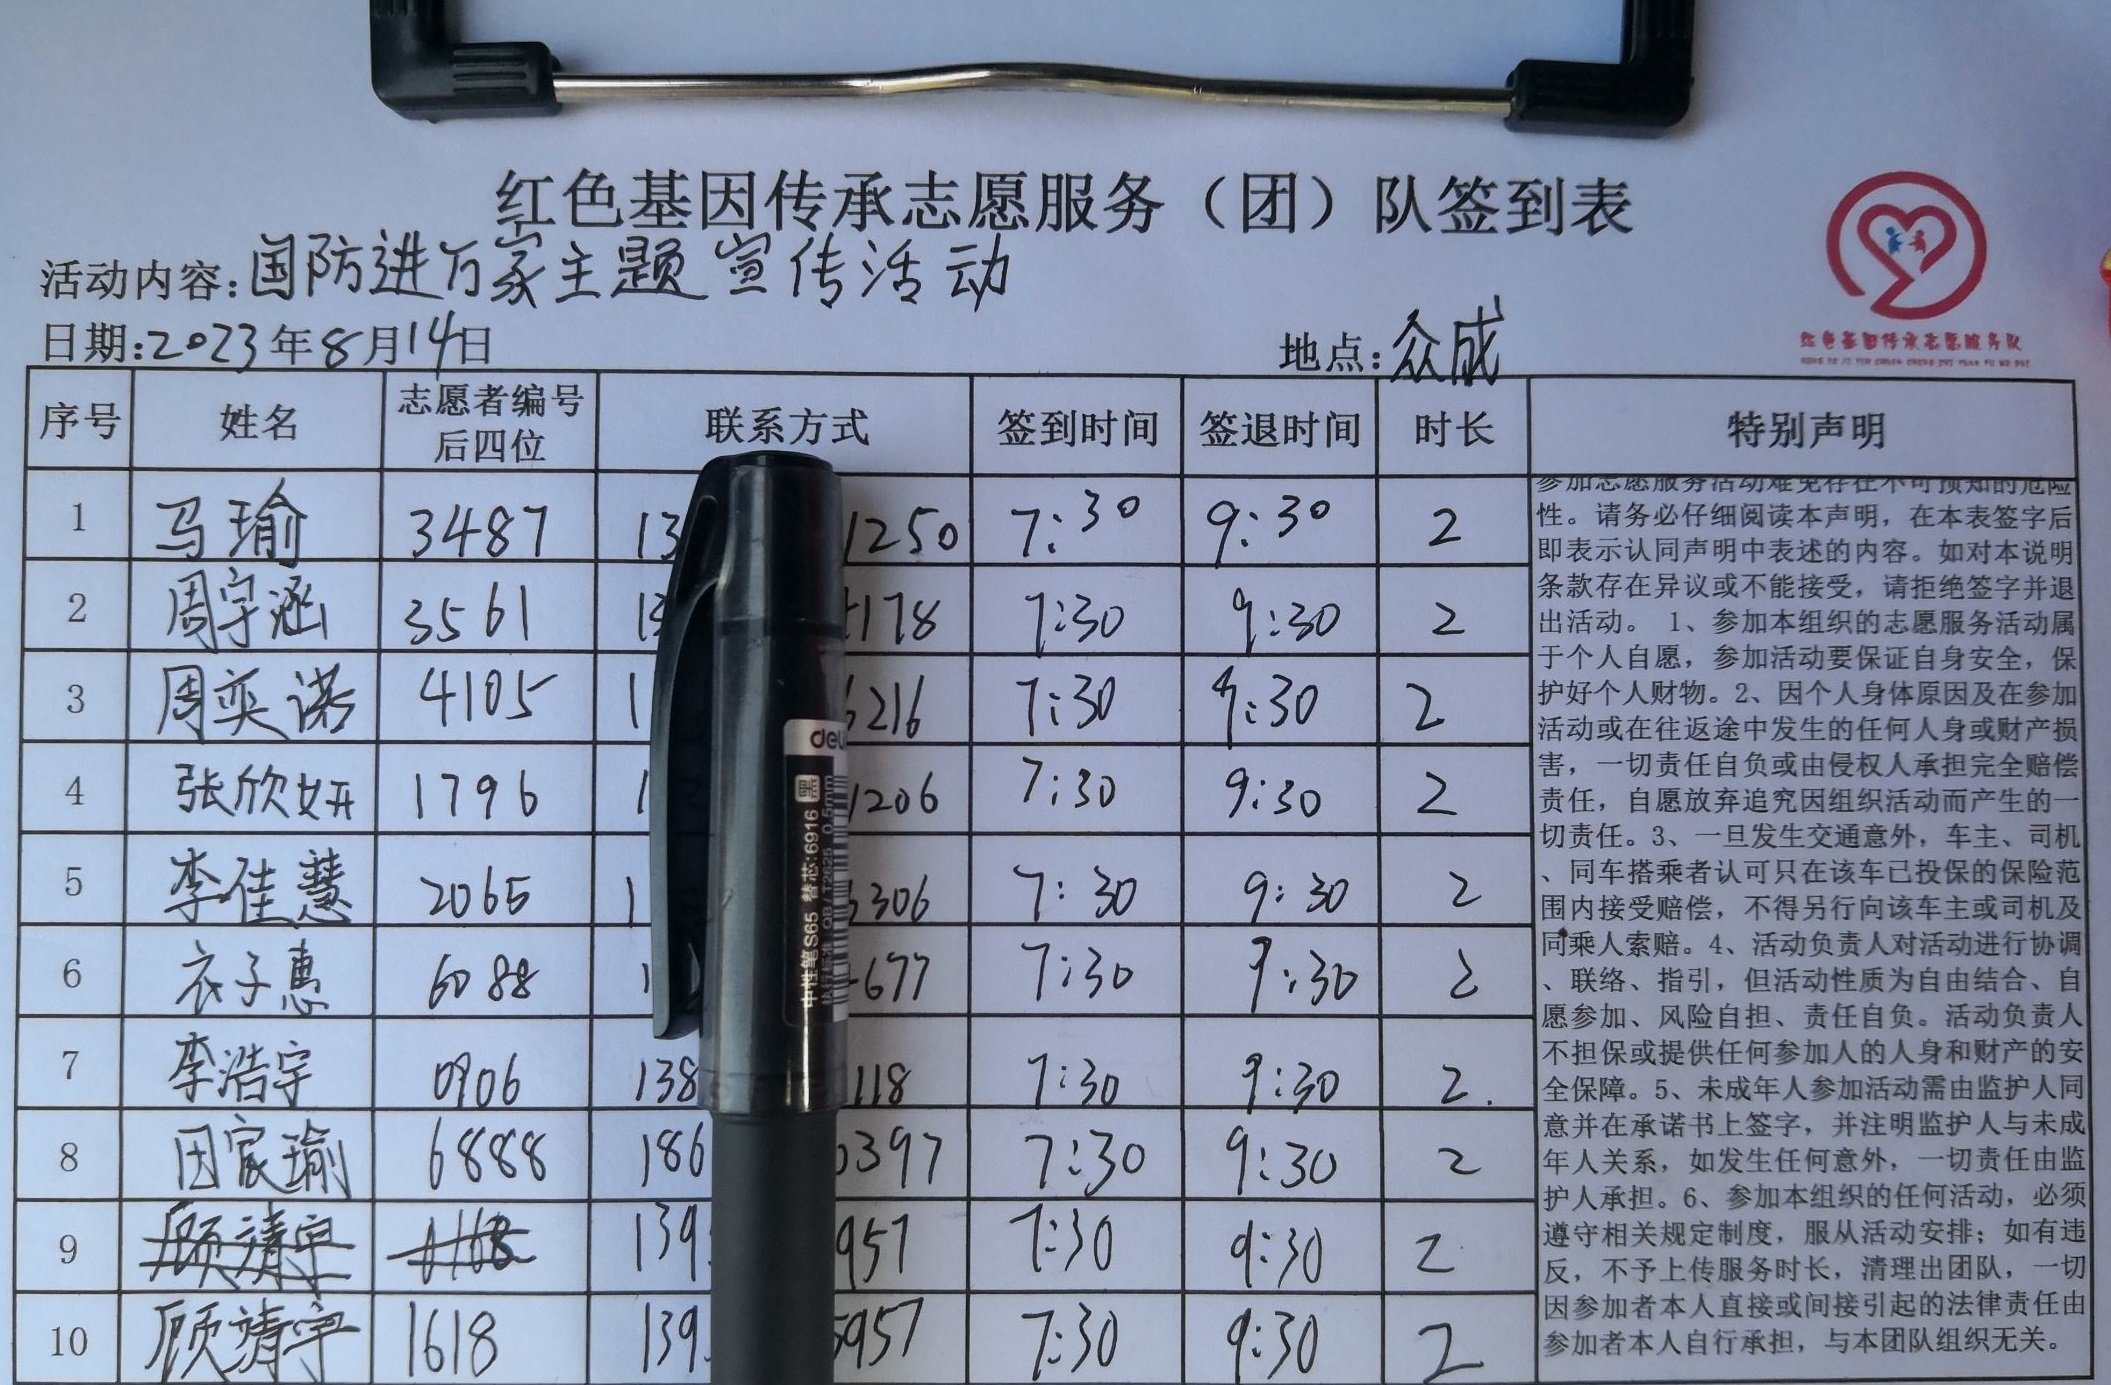 红色基因传承志愿服务（团）队签到表
活动内容:国防进万家主题宣传活动
日期:2023年8月14日 地点:众成
红色基因传承志愿服务队
序号 姓名 志愿者编号后四位 联系方式 签到时间 签退时间 时长 特别声明
1 马瑜 3487 13 1250 7:30 9:30 2
2 周宇涵 3561 13 178 7:30 9:30 2
3 周奕诺 4105 1 6216 7:30 9:30 2
4 张欣妍 1796 1 1206 7:30 9:30 2
5 李佳慧 2065 1 306 7:30 9:30 2
6 衣子惠 6088 1 677 7:30 9:30 2
7 李浩宇 0906 138 118 7:30 9:30 2.
8 田宸瑜 6888 186 0397 7:30 9:30 2
9 顾靖宇 139 957 7:30 9:30 2
10 顾靖宇 1618 139 5957 7:30 9:30 2
参加志愿服务活动难免存在不可预知的危险
性。请务必仔细阅读本声明，在本表签字后
即表示认同声明中表述的内容。如对本说明
条款存在异议或不能接受，请拒绝签字并退
出活动。 1、参加本组织的志愿服务活动属
于个人自愿，参加活动要保证自身安全，保
护好个人财物。2、因个人身体原因及在参加
活动或在往返途中发生的任何人身或财产损
害，一切责任自负或由侵权人承担完全赔偿
责任，自愿放弃追究因组织活动而产生的一
切责任。3、一旦发生交通意外，车主、司机
、同车搭乘者认可只在该车已投保的保险范
围内接受赔偿，不得另行向该车主或司机及
同乘人索赔。4、活动负责人对活动进行协调
、联络、指引，但活动性质为自由结合、自
愿参加、风险自担、责任自负。活动负责人
不担保或提供任何参加人的人身和财产的安
全保障。5、未成年人参加活动需由监护人同
意并在承诺书上签字，并注明监护人与未成
年人关系，如发生任何意外，一切责任由监
护人承担。6、参加本组织的任何活动，必须
遵守相关规定制度，服从活动安排；如有违
反，不予上传服务时长，清理出团队，一切
因参加者本人直接或间接引起的法律责任由
参加者本人自行承担，与本团队组织无关。
deli
中性笔S65 替芯:6916
0.5mm